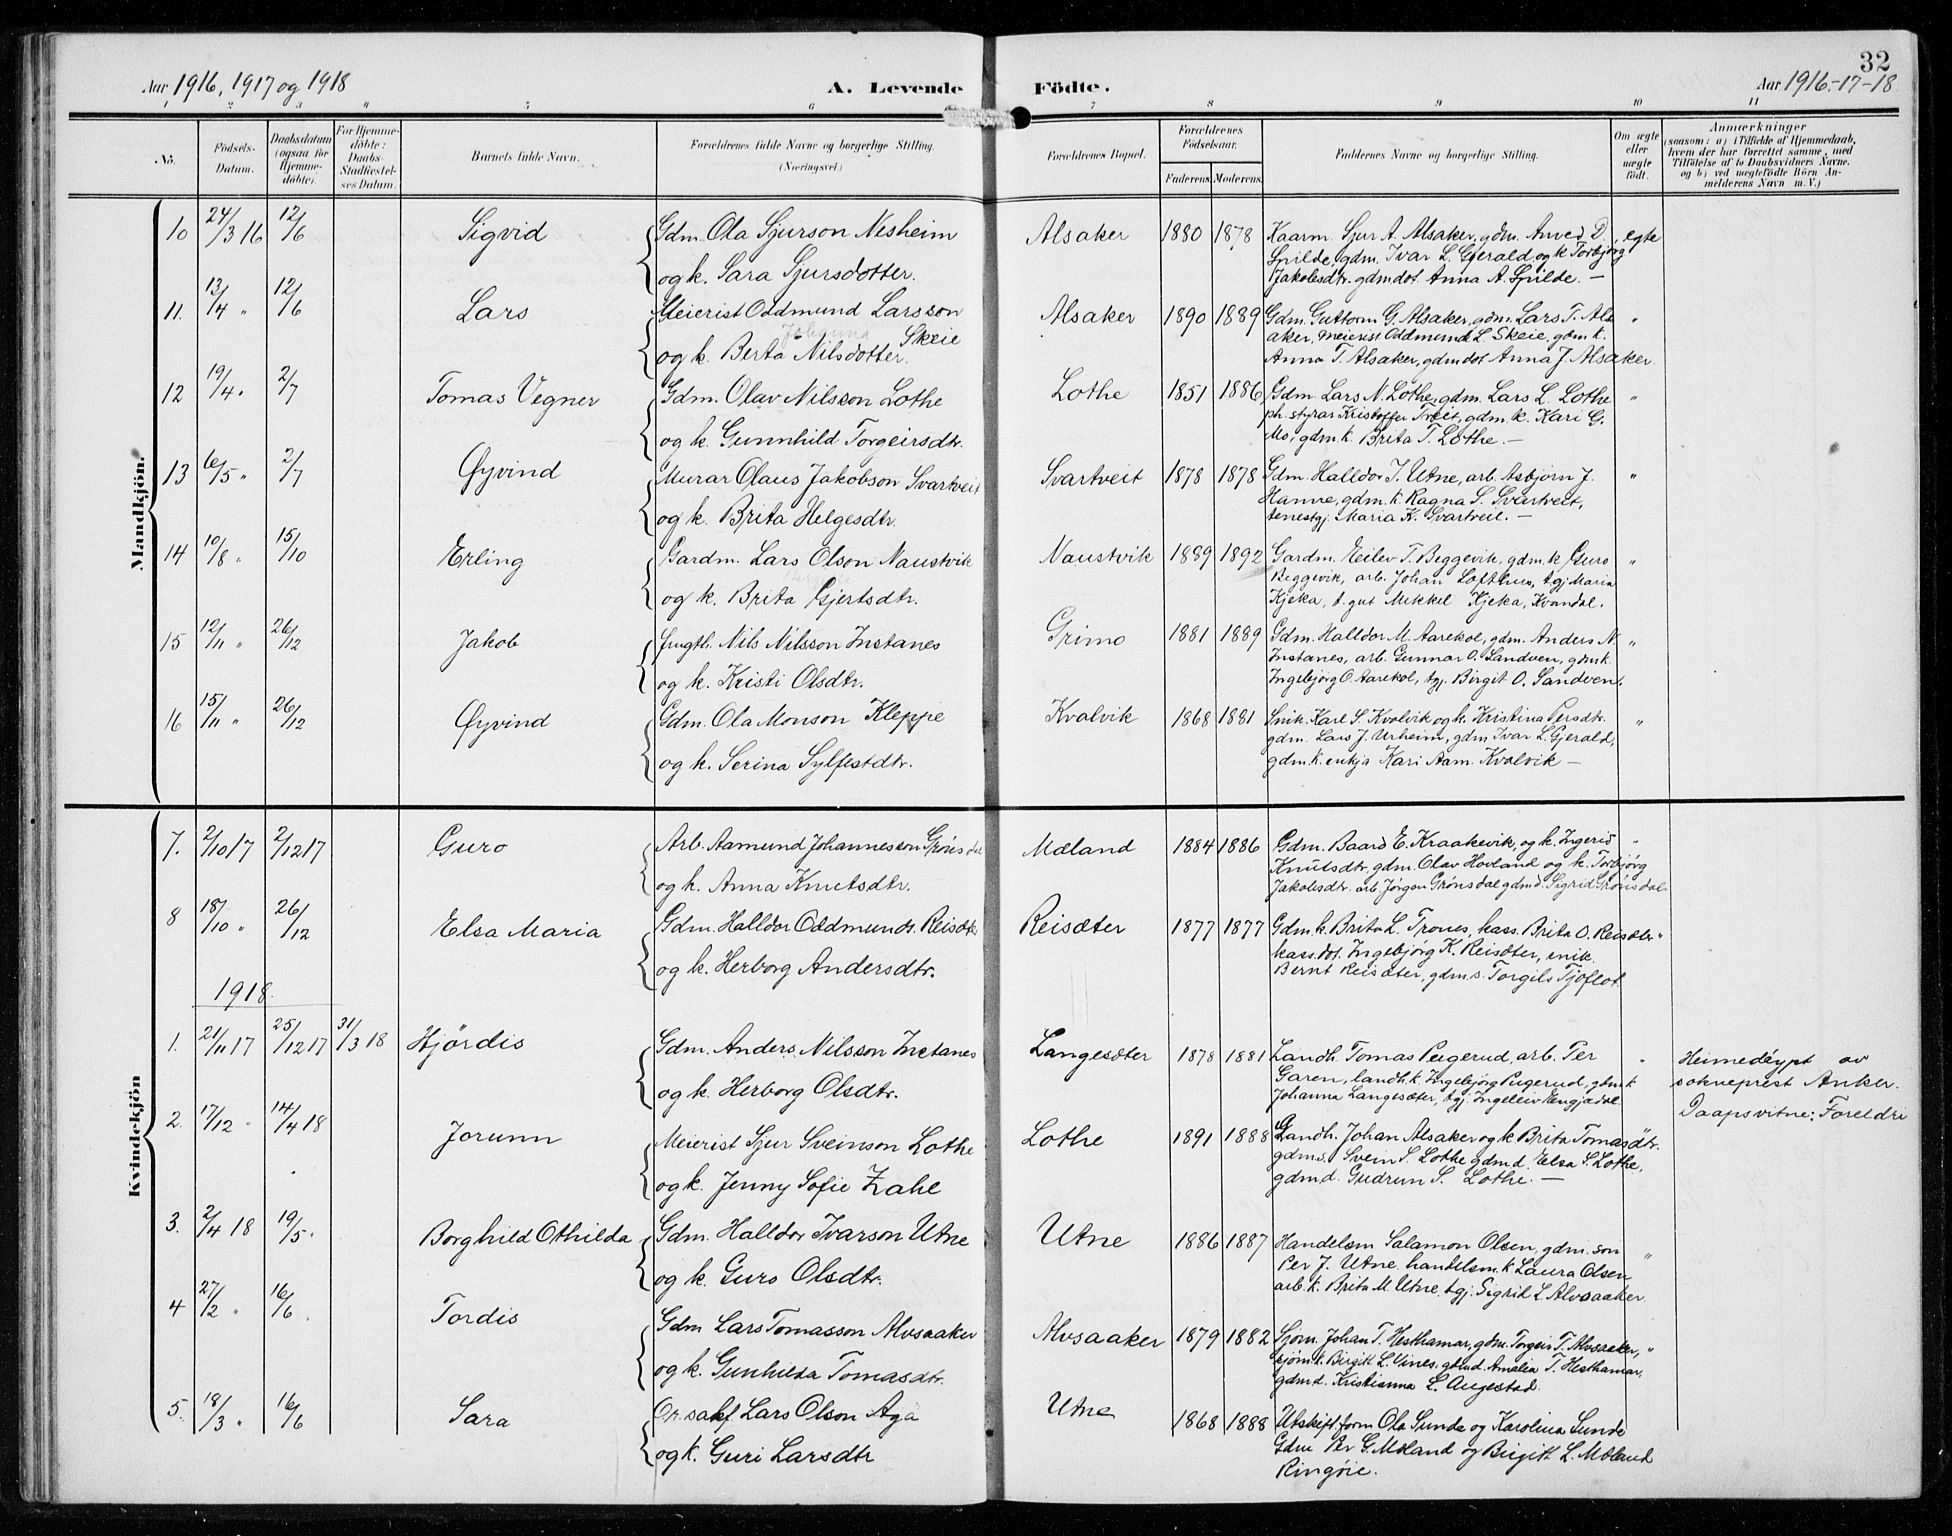 Aar 1916, 1917 og 1918
A. Levende Födte.
32
Aar 1916-17-18
1 2 3 " 5 6 7 8 9 10 11
No. Födsels-Datum. Daabsdatum (ogsaa for Hjemme-döbte). For Hjemme-döbte: Daabs-Stadfæstel-ses Datum. Barnets fulde Navn. Forældrenes fulde Navne og borgerlige Stilling. (Næringsvei.) Forældrenes Bopæl. Forældrenes Födselsaar. Faderens. Moderens. Faddernes Navne og borgerlige Stilling. Om ægte eller uægte födt. Anmærkninger (saasom: a) i Tilfælde af Hjemmedaab, hvem der har forrettet samme, med Tilföielse af to Daabsvidners Navne. og b) ved uægtefödte Börn An-melderens Navn m. V.)
Mandkjön.
10 24/3 16 12/6 Sigvid Gdm. Ola Sjurson Nesheim Alsaker 1880 1878 Kaarm. Sjur A. Alsaker, gdm. Amed D. egte
og k. Sara Sjursdotter. Spilde, gdm. Ivar L. Gjerald og k Torbjörg
Jakobsdtr. gdmdot Anna A. Spilde. —
11. 13/4 " 12/6 Lars Meierist Oddmund Larsson Skeie Alsaker 1890 1889 Gdm. Guttorm G. Alsaker, gdm. Lars T. Als "
Johanna
og k. Berta Nilsdotter. aker, meierist Oddmund L. Skeie, gdm k.
Anna T. Alsaker, gdmdot Anna J. Alsaker
12 19/4 " 2/7 Tomas Vegner Gdm. Olav Nilsson Lothe Lothe 1851 1886 Gdm. Lars N. Lothe, gdm. Lars L. Lothe "
og k. Gunnhild Torgeirsdtr. ph. styrar Kristoffer Tveit, gdm k. Kari G.
Mo, gdm k. Brita T. Lothe. —
13 6/5 " 2/7 Øyvind Murar Olaus Jakobson Svartveit Svartveit 1878 1878 Gdm. Halldor J. Utne, arb. Asbjørn J. "
og k. Brita Helgesdtr. Hamre, gdm. k. Ragna S. Svartveit,
tenestgj. Maria K. Svartveit. —
14 10/8 " 15/10 Erling Gardm. Lars Olson Naustvik Naustvik 1889 1892 Gardm. Eilev T. Beggevik, gdm. k Guro "
og k. Brita Gjertsdtr. Beggevik, arb. Johan Lofthus, tgj Maria
Kjeka, t. gut Mikkel Kjeka, Kvandal.
15 12/11 " 26/12 Jakob frugth. Nils Nilsson Instanes Grimo 1881 1889 Gdm. Halldor M. Aarekol, gdm. Anders N. "
og k. Kristi Olsdtr. Instanes, arb. Gunnar O. Sandven, gdm k.
Ingebjörg O. Aarekol, tgj. Birgit O. Sandven.
16 15/11 " 26/12 Øyvind Gdm. Ola Monson Kleppe Kvalvik 1868 1881 Snik. Karl S. Kvalvik og k. Kristina Persdtr. "
og k. Serina Sylfestdtr. gdm. Lars J. Urheim, gdm Ivar L. Gjerald,
gdm. k. enkja Kari Aam. Kvalvik —
Kvindekjön
7. 2/10 17 2/12 17 Guro Arb. Aamund Johannesson Grönsdal Mæland 1884 1886 Gdm. Baard E. Kraakevik, og k. Ingerid "
og k. Anna Knutsdtr. Knutsdtr, gdm. Olav Hovland og k. Torbjörg
Jakobsdtr. arb. Jörgen Grönsdal gdmd. Sigrid Grönsdal.
8 18/10 " 26/12 Elsa Maria Gdm. Halldor Oddmunds. Reisæter Reisæter 1877 1877 Gdm. k. Brita L. Trones, kass. Brita O. Reisæter "
og k. Herborg Andersdtr. kass. dot. Ingebjörg K. Reisæter, snik.
Bernt Reisæter, gdm. s. Torgils Tjoflot.
1918.
1. 21/11 17 25/12 17 31/3 18 Hjördis Gdm. Anders Nilsson Instanes Langesæter 1878 1881 Landh. Tomas Pugerud, arb. Per " Heimedöypt av
og k. Herborg Olsdtr. Garen, landh. k. Ingebjörg Pugerud, gdm k sokneprest Anker.
Johanna Langesæter, tgj. Ingeleiv Engjadal Daapsvitne: Foreldri
2. 17/12 " 14/4 18 Jorunn Meierist Sjur Sveinson Lothe Lothe 1891 1888 Landh. Johan Alsaker og k Brita Tomasdtr.
og k. Jenny Sofie Zahl gdms. Svein S. Lothe gdmd. Elsa S. Lothe,
gdmd. Gudrun S. Lothe. —
3. 2/4 18 19/5 " Borghild Othilda Gdm. Halldor Ivarson Utne Utne 1886 1887 Handelsm Salamon Olsen, gdm. son "
og k. Guro Olsdtr. Per J. Utne, handelsm. k Laura Olsen
arb. k. Brita M. Utne, tgj. Sigrid L. Alvsaaker.
4 27/2 " 16/6 Tordis Gdm Lars Tomasson Alvsaaker Alvsaaker 1879 1882 Sjöm. Johan T. Hesthamar, gdm. Torgeir T. Alvsaaker, "
og k. Gunhilda Tomasdtr. sjöm. k. Birgit L. Vines, gdmd. Amalia T. Hesthamar,
gdmd. Kristianna L. Augestad.
5. 18/3 " 16/6 Sara O.r.sakf Lars Olson Aga Utne 1868 1888 Utskift.form Ola Sunde og Karolina Sunde
og k. Guri Larsdtr Gdm Per G. Mæland og Birgitt L. Mæland
Ringöie.